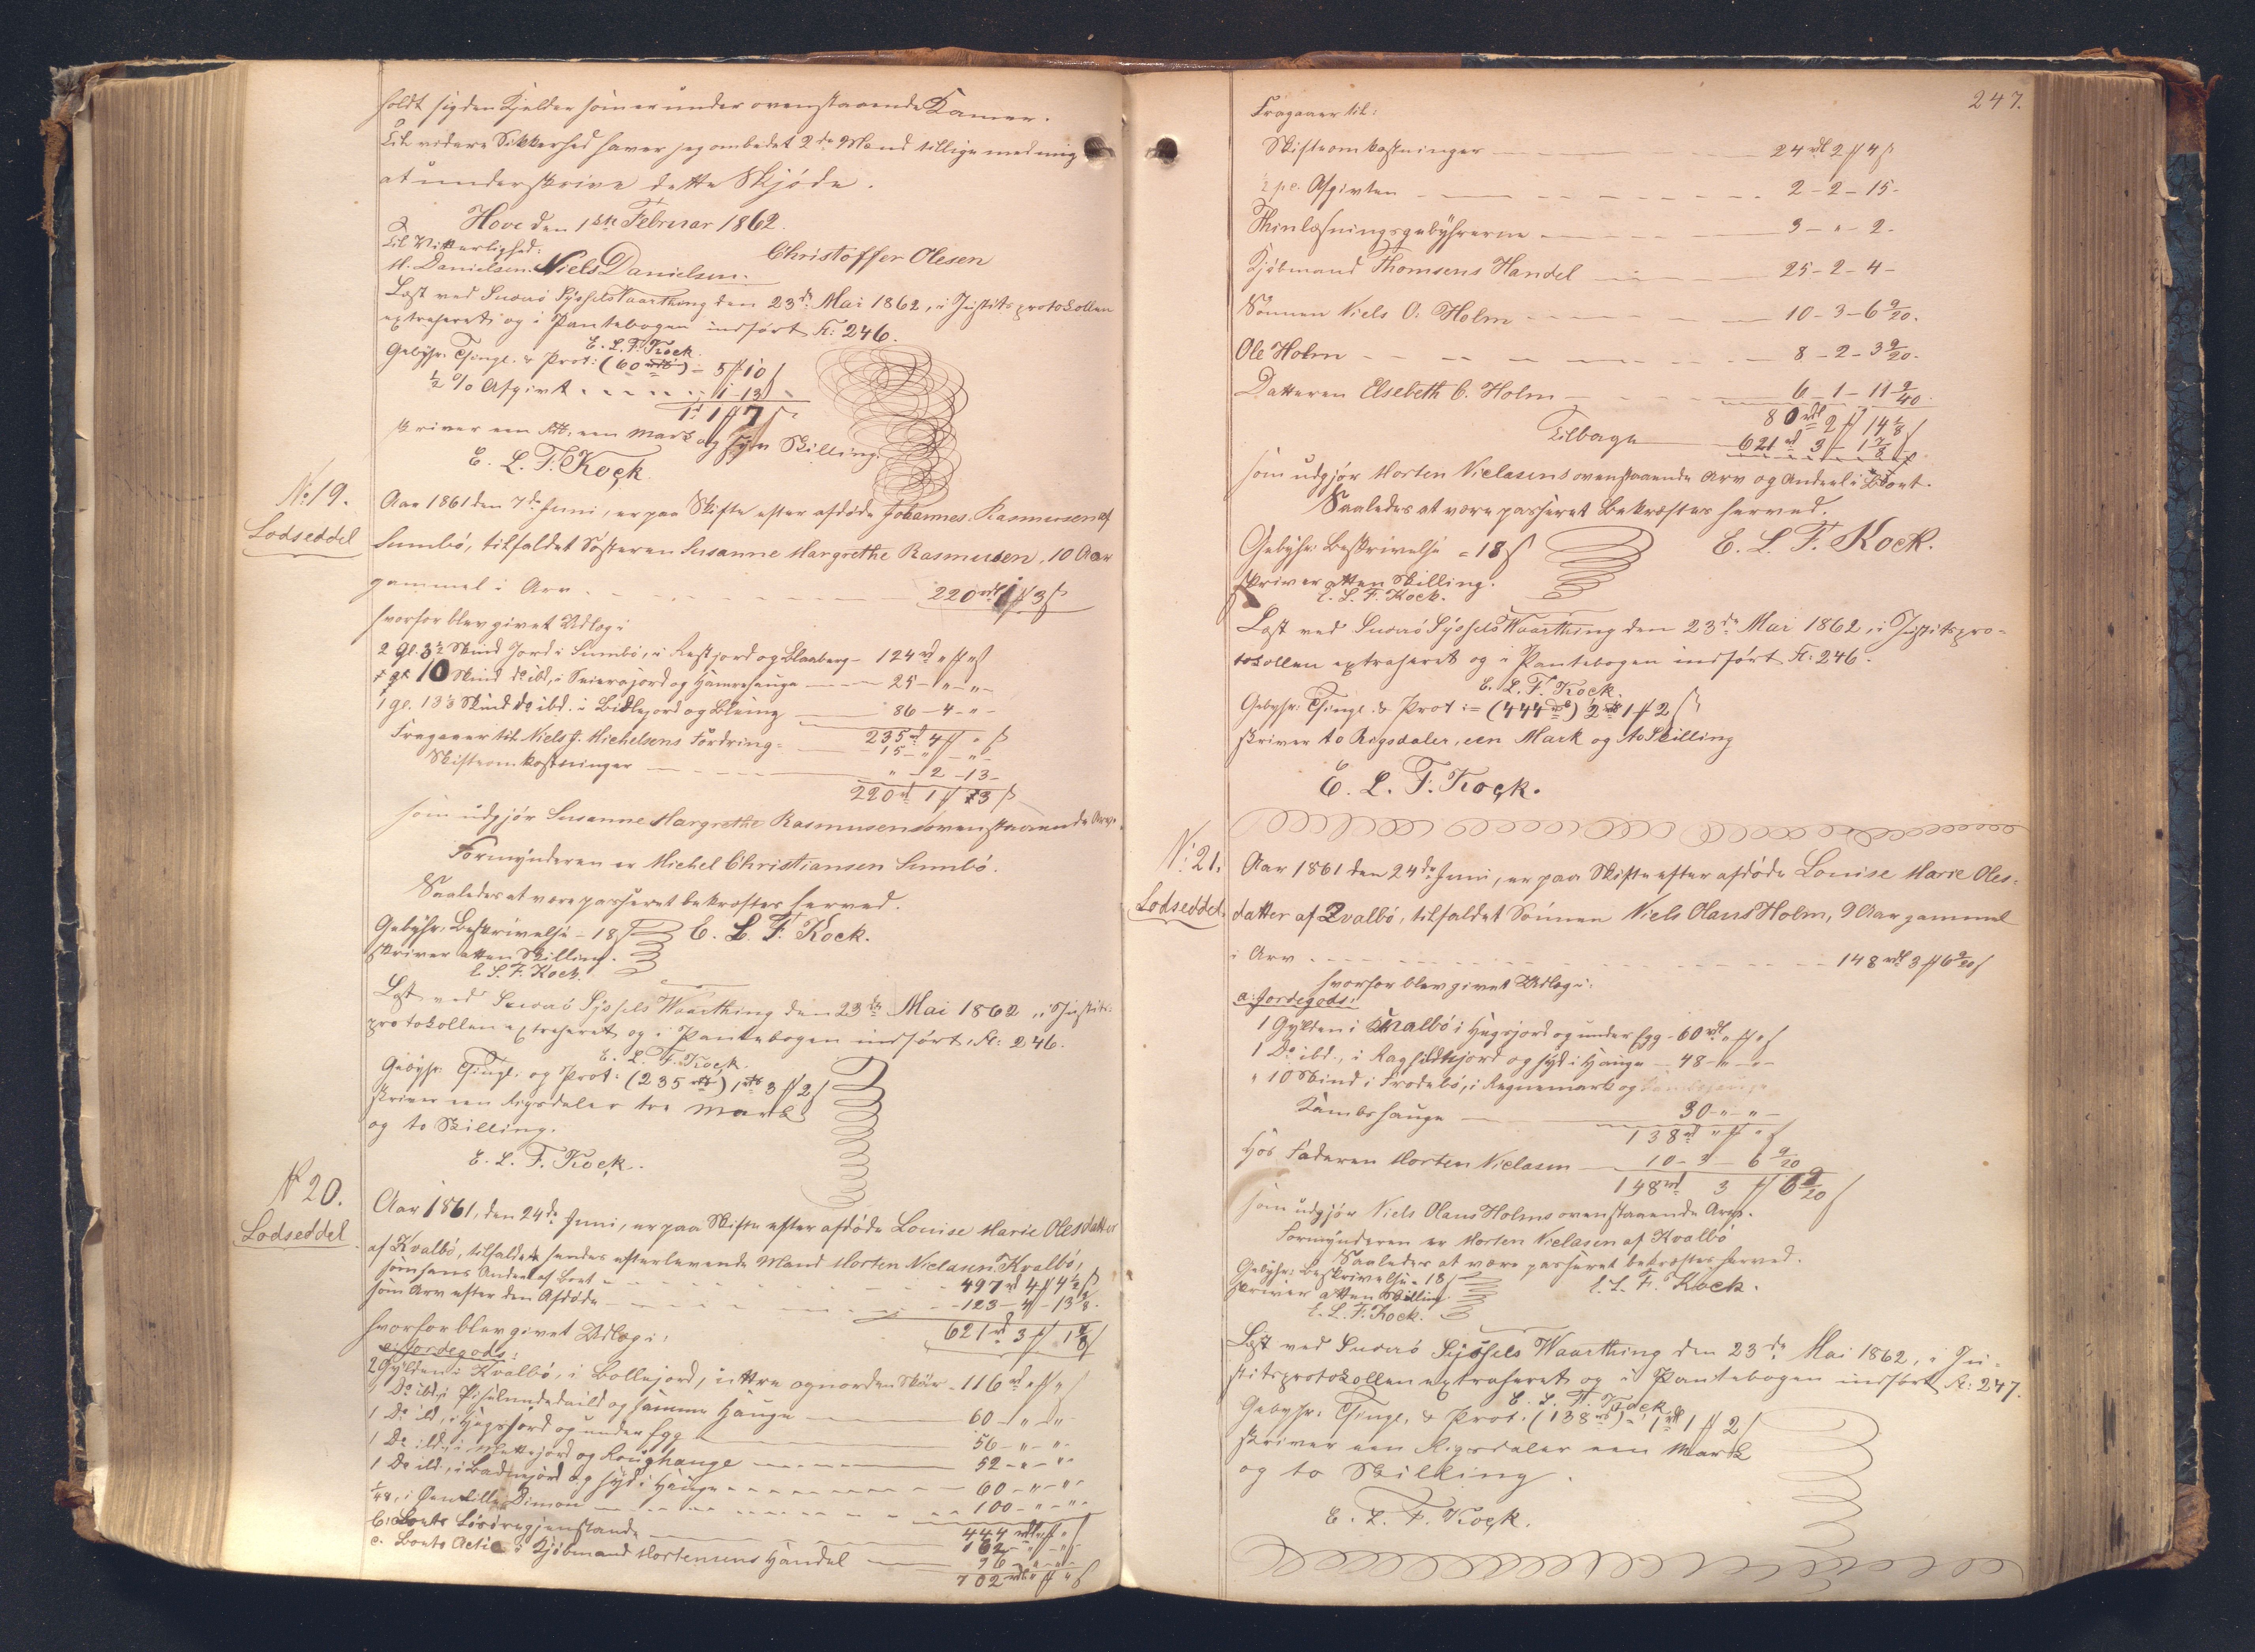 holdt sig den Kjelder som er under ovenstaaende Kamer.
Til videre Sikkerhed haver jeg ombedet 2de Mænd tillige med mig
at underskrive dette Skjøde.
Hove den 1ste Februar 1862.
Til Vitterlighed: Christoffer Olesen
M. Danielsen. Niels Danielsen.
Læst ved Suderø Syssels Vaarthing den 23de Mai 1862, i Justitsprotokollen
extraheret og i Pantebogen indført Fl: 246.
E. L. F. Kock.
Gebyhr. Thingl. & Prot: (60 rd) = 5 ℳ 10 ß
½ % Afgivt - - - - 1 - 13
1 rd 1 ℳ 7 ß
skriver een Rd, een Mark og syv Skilling.
E. L. F. Kock
No 19.
Lodseddel
Aar 1861 den 7de Juni, er paa Skifte efter afdøde Johannes Rasmussen af
Sumbø, tilfaldet Søsteren Susanne Margrethe Rasmussen, 10 Aar
gammel i Arv - - - 220 rd 1 ℳ 3 ß
hvorfor blev givet Udlæg i
2 Gl. 3½ Skind Jord i Sumbø, i Restjord og Blaaberg - 124 rd " ℳ " ß
10 Skind do ibd, i Sneierajord og Hamrehauge - 25 - " - " -
1 gl. 13⅓ Skind do ibd. i Bidlejord og Bleing - 86 - 4 - " -
235 rd 4 ℳ " ß
Fragaaer til Niels J. Michelsens Fordring - 15 - " - " -
Skifteomkostninger - " - 2 - 13 -
220 rd 1 ℳ 3 ß
som udgjør Susanne Margrethe Rasmussens ovenstaaende Arv.
Formynderen er Michel Christiansen Sumbø.
Saaledes at være passeret bekræftes herved.
Gebyhr: Beskrivelse - 18 ß E. L. F. Kock.
skriver atten Skilling.
E. L. F. Kock.
Læst ved Suderø Syssels Vaarthing den 23de Mai 1862, i Justits-
protokollen extraheret og i Pantebogen indført, Fl: 246.
E. L. F. Kock.
Gebyhr. Thingl. og Prot: (235 rd) 1 rd 3 ℳ 2 ß
skriver een Rigsdaler tre Mark
og to Skilling.
E. L. F. Kock.
No 20.
Lodseddel
Aar 1861, den 24de Juni, er paa Skifte efter afdøde Louise Marie Olesdatter
af Kvalbø, tilfaldet hendes efterlevende Mand Morten Niclasen Kvalbø,
som hans Andeel af Boet - 497 rd 4 ℳ 4½ ß
som Arv efter den Afdøde - 123 - 4 - 13 3/8 -
621 rd 3 ℳ 1 7/8 ß
hvorfor blev givet Udlæg i:
a. Jordegods:
2 Gylden i Kvalbø, i Bollejord, ittre og norden Skør - 116 rd " ℳ " ß
1 Do ibd, i og samme Hauge - 60 - " - " -
1 Do ibd, i Hegsjord og under Egg - 56 - " - " -
1 Do ibd, i Mettejord og Roughauge - 52 - " - " -
1 Do ibd, i Badnejord og Syd i Hauge - 60 - " - " -
1/48, i Øen lille Dimon - 100 - " - " -
444 rd " ℳ " ß
b. Boets Løsøregjenstande - 162 - " - " -
c. Boets Actie i Kjøbmand Mortensens Handel - 96 - " - " -
702 rd " ℳ " ß
247.
Fragaaer til:
Skifteomkostninger - 24 rd 2 ℳ 4 ß
½ pc. Afgivten - 2 - 2 - 15 -
Thinlæsningsgebyhrerne - 3 - " - 2 -
Kjøbmand Thomsens Handel - 25 - 2 - 4 -
Sønnen Niels O. Holm - 10 - 3 - 6 9/20 -
Ole Holm - 8 - 2 - 3 9/20 -
Datteren Elsebeth C. Holm - 6 - 1 - 11 9/40 -
80 rd 2 ℳ 14 1/8 ß
Tilbage - 621 rd 3 - 1 7/8 ß
som udgjør Morten Niclasens ovenstaaende Arv og Andeel i Boet.
Saaledes at være passeret bekræftes herved.
Gebyhr: Beskrivelse = 18 ß E. L. F. Kock.
skriver atten Skilling.
E. L. F. Kock.
Læst ved Suderø Syssels Vaarthing den 23de Mai 1862, i Justitspro-
tokollen extraheret og i Pantebogen indført Fl: 246.
E. L. F. Kock.
Gebyhr: Thingl. & Prot := (444 rd) 2 rd 1 ℳ 2 ß
skriver to Rigsdaler, een Mark og to Skilling
E. L. F. Kock.
No 21.
Lodseddel.
Aar 1861 den 24de Juni, er paa Skifte efter afdøde Louise Marie Oles-
datter af Qvalbø, tilfaldet Sønnen Niels Olaus Holm, 9 Aar gammel
i Arv - 148 rd 3 ℳ 6 9/20 ß
hvorfor blev givet Udlæg i:
a. Jordegods:
1 Gylden i Kvalbø i Hegsjord og under Egg - 60 rd " ℳ " ß
1 Do ibd., i Raghildtsjord og Syd i Hauge - 48 - " - " -
" 10 Skind i Frodebø, i Regnemark og
Kambshauge - 30 - " - " -
138 rd " ℳ " ß
Hos Faderen Morten Niclasen - 10 - 3 - 6 9/20
148 rd 3 ℳ 6 9/20 ß
som udgjør Niels Olaus Holms ovenstaaende Arv.
Formynderen er Morten Niclasen af Kvalbø
Saaledes at være passeret bekræftes herved.
Gebyhr: Beskrivelse = 18 ß E. L. F. Kock.
skriver atten Skilling.
E. L. F. Kock.
Læst ved Suderø Syssels Vaarthing den 23de Mai 1862, i Ju-
stitsprotokollen extraheret og i Pantebogen indført Fl: 247.
E. L. F. Kock
Gebyhr: Thingl. & Prot: (138 rd) = 1 rd 1 ℳ 2 ß
skriver een Rigsdaler een Mark
og to Skilling.
E. L. F. Kock.